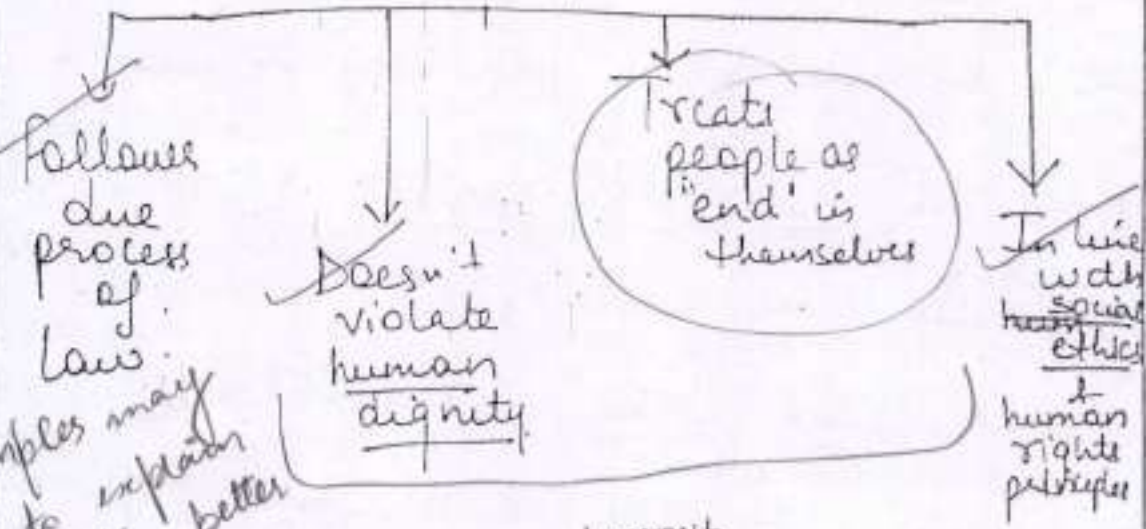 Follows
due
process
of
Law.
Doesn't
violate
human
dignity
Treats
people as
"end" in
themselves
In line
with
social
ethics
&
human
rights
principles
may
explain
better